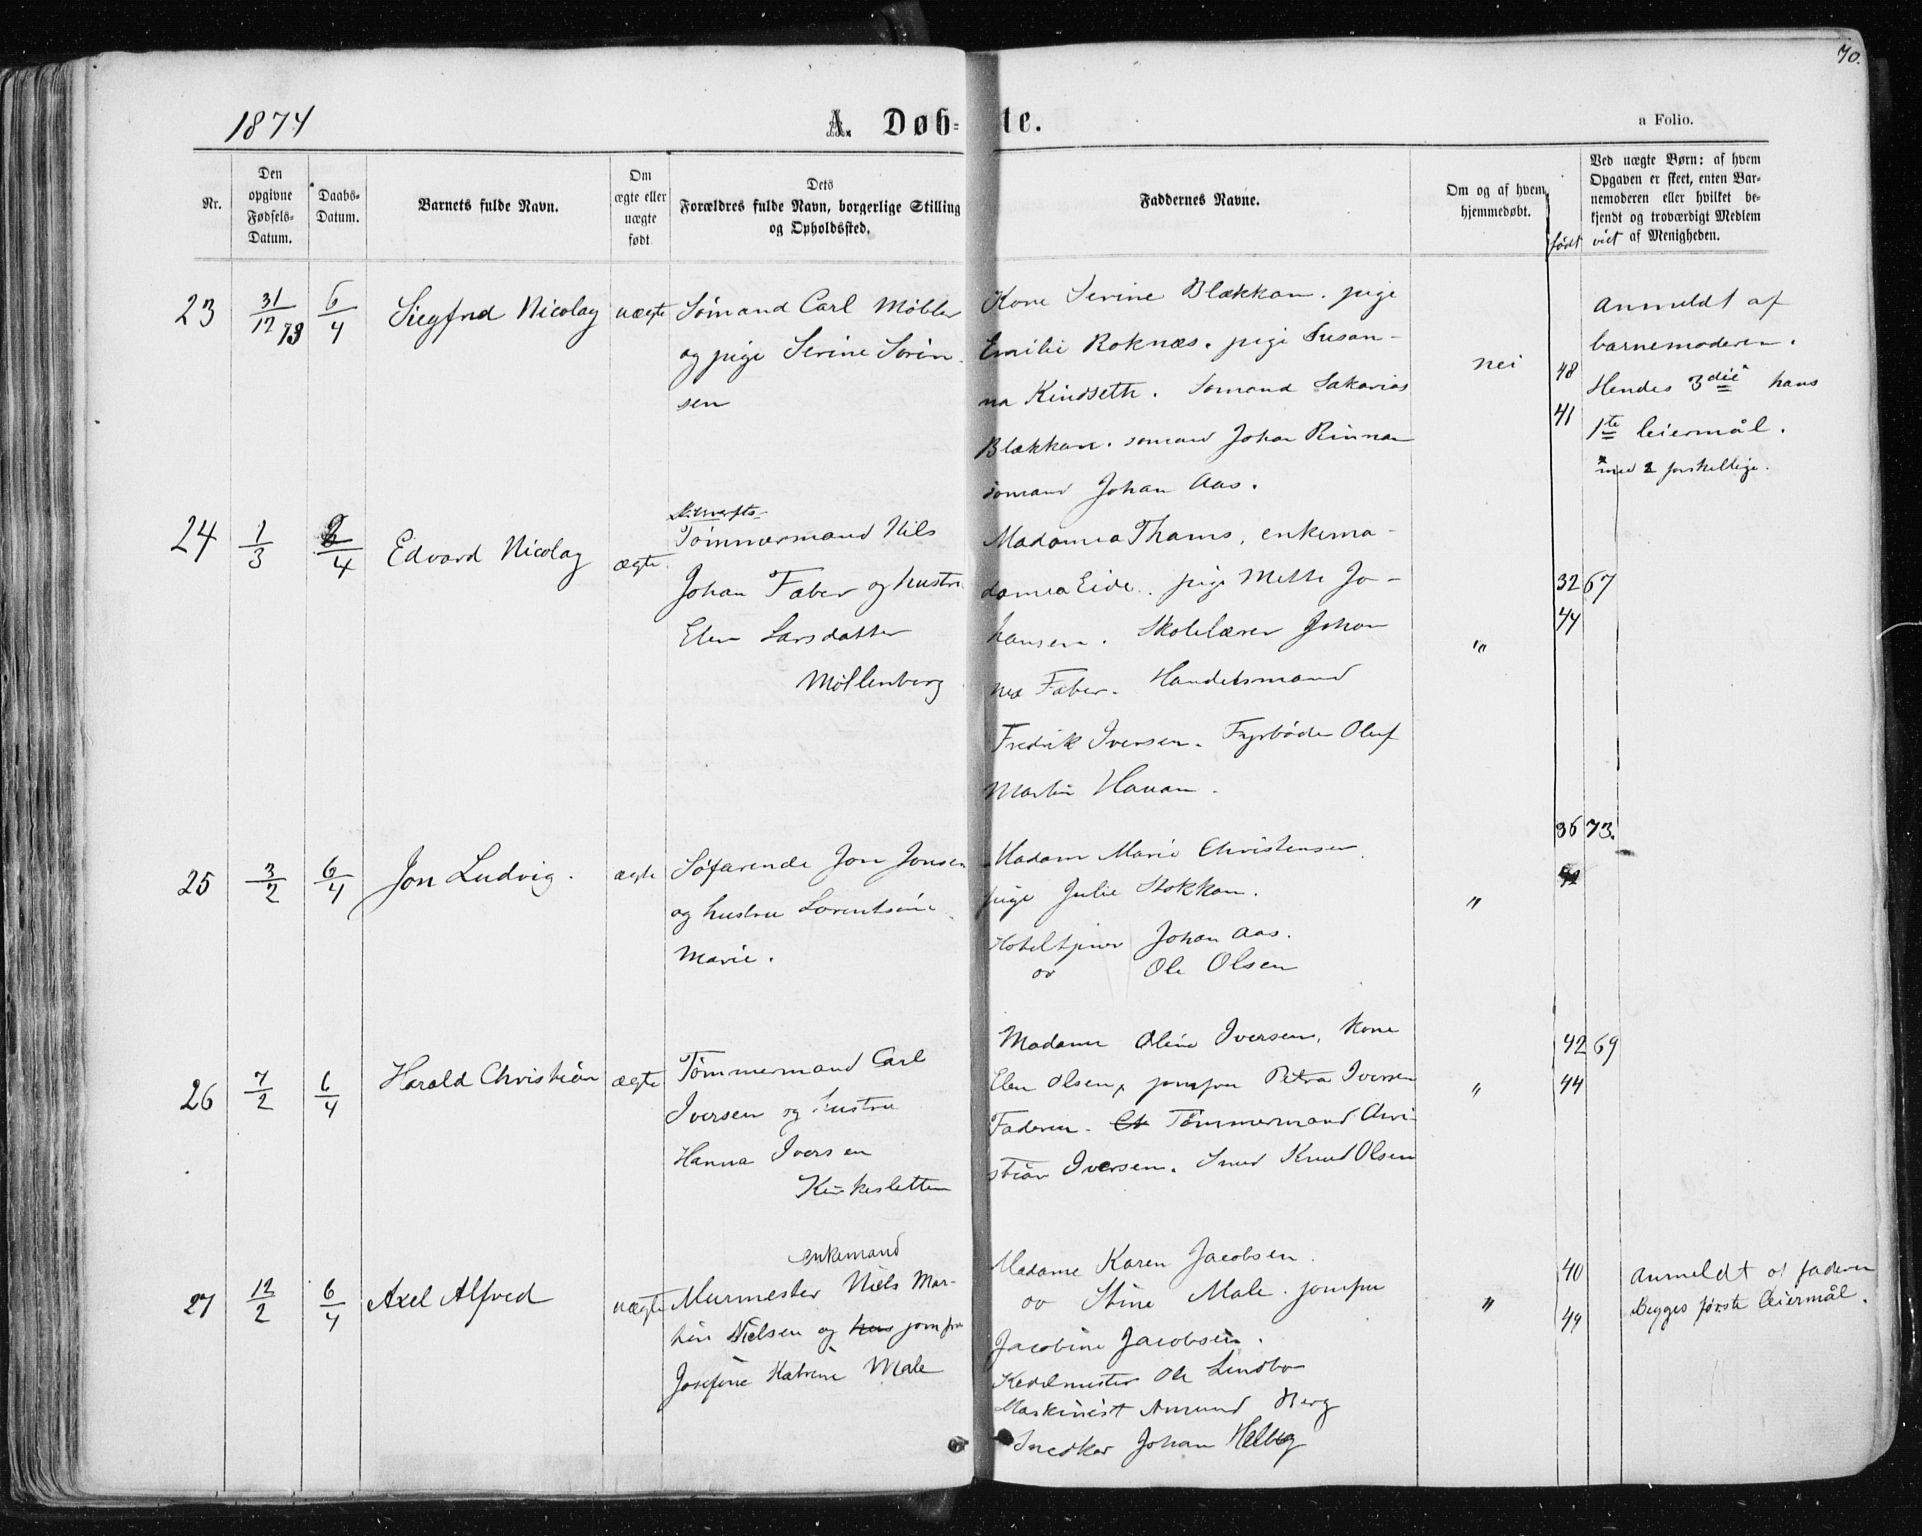 70.
1874
A. Døb-te.
a Folio.
Nr.
Den opgivne Fødsels-Datum.
Daabs-Datum.
Barnets fulde Navn.
Om ægte eller uægte født.
Dets Forældres fulde Navn, borgerlige Stilling og Opholdssted.
Faddernes Navne.
Om og af hvem hjemmedøbt.
født
viet
Ved uægte Børn: af hvem Opgaven er skeet, enten Barnemoderen eller hvilket bekjendt og troværdigt Medlem af Menigheden.
23
31/12 73
6/4
Siegfred Nicolay
uægte
Sømand Carl Møbler
og pige Serine Sørin
sen
Kone Serine Blækkan. pige
Emilie Roknæs. pige Susan-
na Kindseth. Sømand Sakarias
Blækkan. sømand Johan Rinnan
sømand Johan Aas.
nei
48
41
Anmeldt af
barnemoderen.
Hendes 3die x hans
1te leiermål.
x med 2 forskellige.
24
1/3
6/4
Edvard Nicolay
ægte
Tømmermand Nils
Johan Faber og hustru
Elen Larsdatter
Møllenberg
Madamea Thams, enkema-
damea Eide. pige Mette Jo-
hansen. Skolelærer Johan
nes Faber. Handelsmand
Fredrik Iversen. Fyrbøder Oluf
Martin Havan.
"
32 67
44
25
3/2
6/4
Jon Ludvig.
ægte
Søfarende Jon Jonsen
og hustru Lorentsine
Marie.
Madam Marie Christensen
pige Julie Stokkan.
Hoteltjener Johan Aas.
ov Ole Olsen
"
36 73.
26
7/2
6/4
Harald Christian
ægte
Tømmermand Carl
Iversen og hustru
Hanna Iversen
Kirkesletten
Madame Oline Iversen, Kone
Elen Olsen, jomfru Petra Iversen
Faderen. Tømmermand Chri-
stian Iversen. Smed Knud Olsen
"
42 69
44
27
12/2
6/4
Axel Alfred
uægte
enkemand
Murmester Niels Mar-
tin Nielsen og hus jomfru
Josefine Katrine Male
Madame Karen Jacobsen.
ov Stine Male. jomfru
Jacobine Jacobsen.
Kedelmester Ole Lindbo
Maskinist Amund Berg
Snedker Johan Helbig
"
40
49
Anmeldt af faderen
Begges første leiermål.